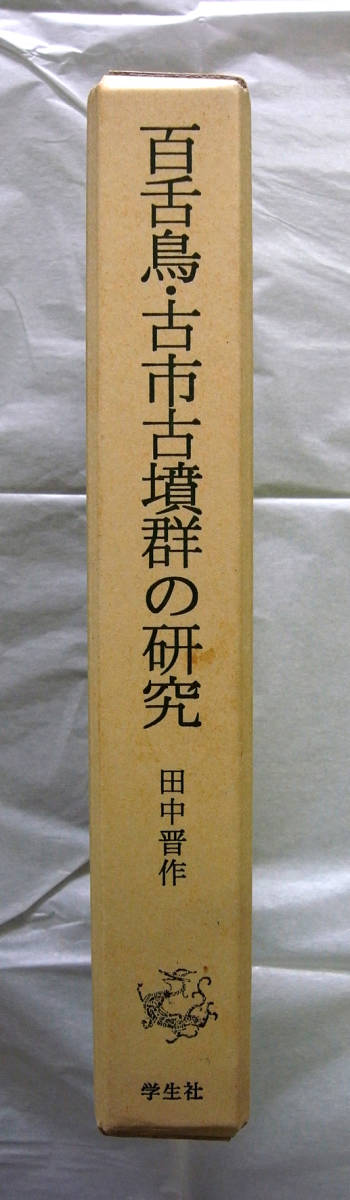 百舌鳥・古市古墳群の研究
田中晋作
学生社